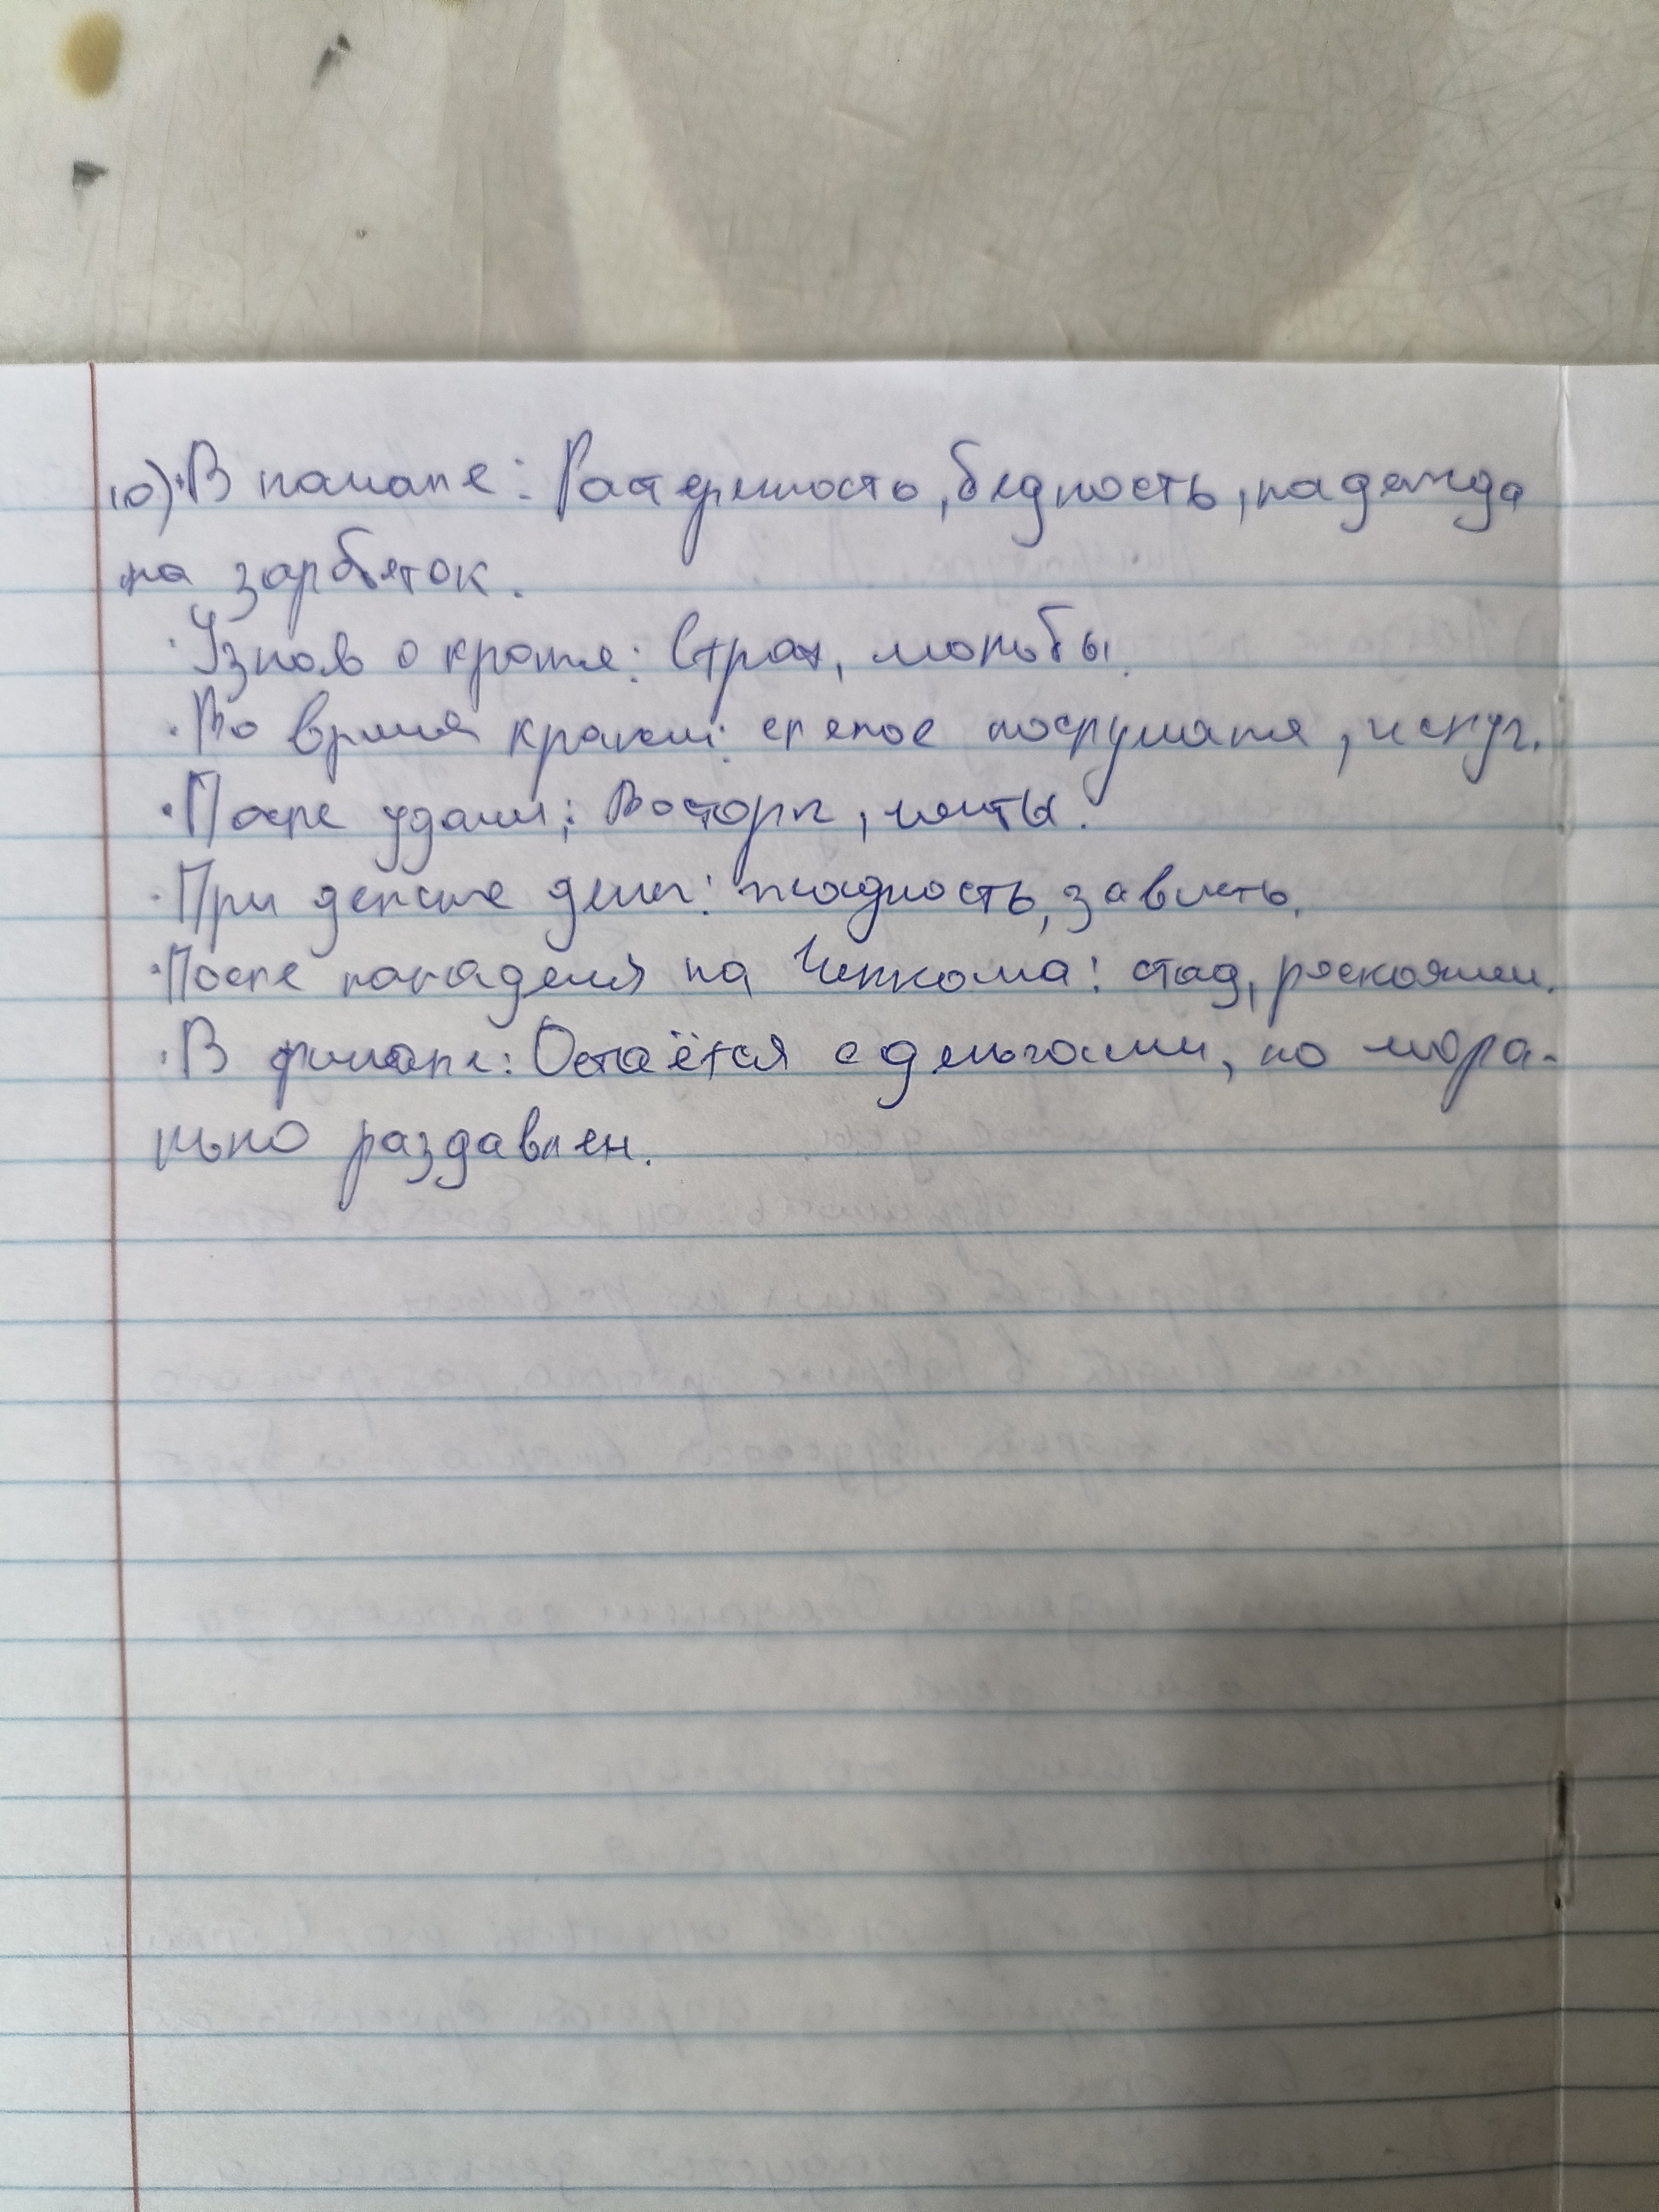 10)·В начале: Растеренность, бедность, надежда
на зарбаток.
·Узнав о краже: Страх, мольбы.
·Во время кражи: слепое послушание, испуг.
·После удачи: Восторг, мечты.
·При дележе денег: жадность, зависть.
·После нападения на Челкаша: стыд, раскаяние.
·В финале: Остаётся с деньгами, но мора-
льно раздавлен.